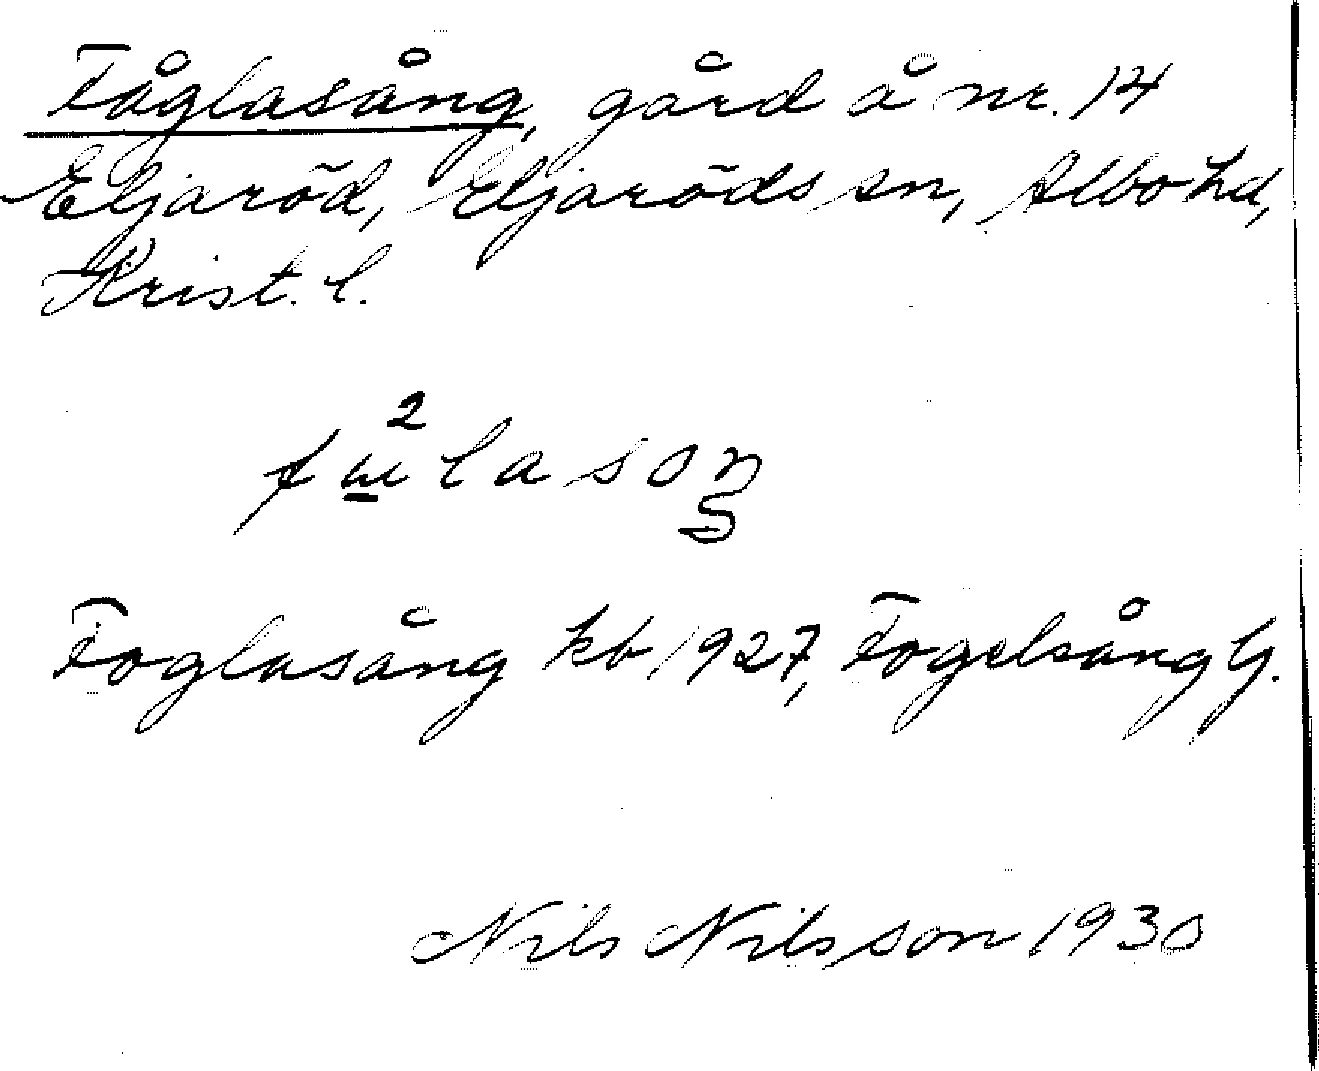 Fåglasång, gård å nr. 14
Eljaröd, Eljaröds sn, Albo hd,
Krist. l.
Foglasång kb 1927, Fogelsång G.
Nils Nilsson 1930